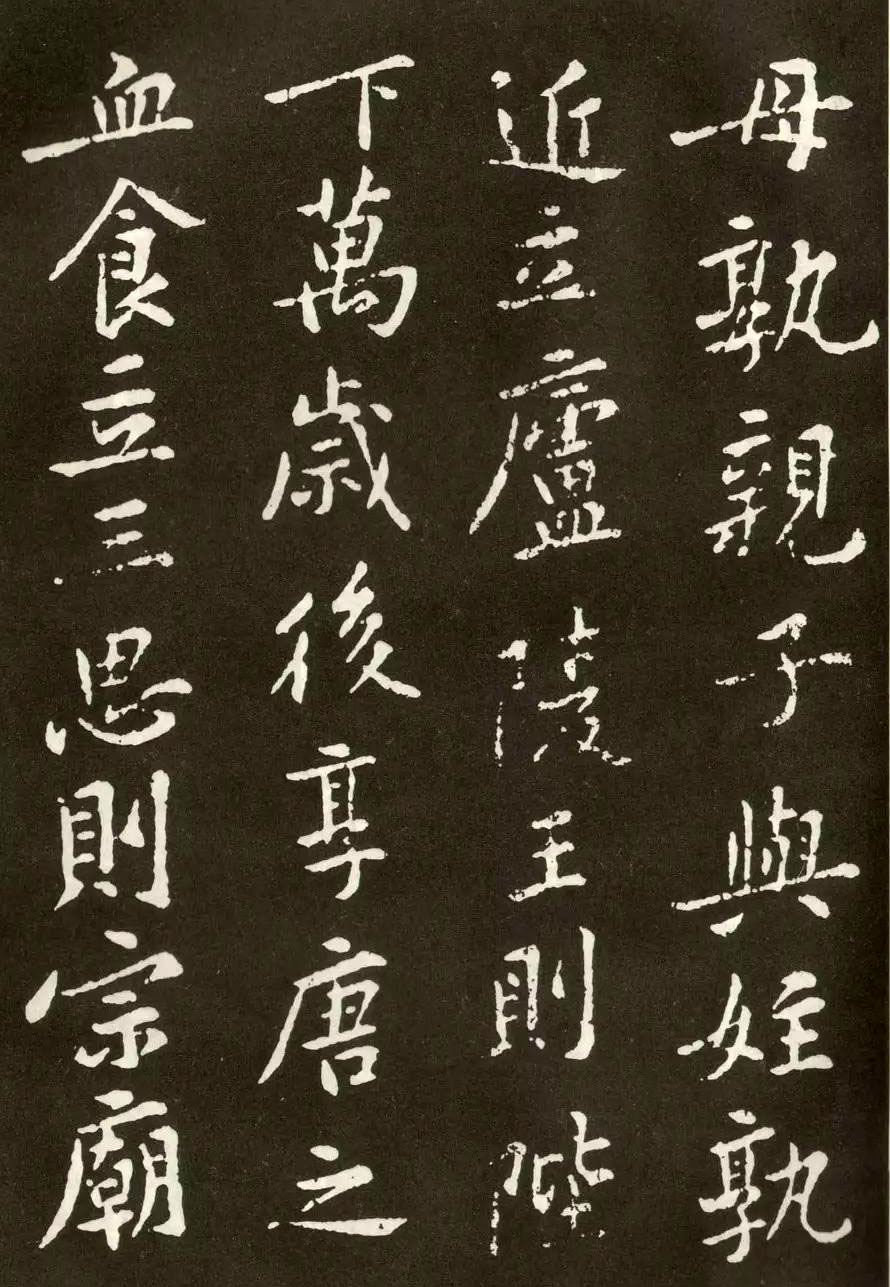 母孰親子與姪孰
近立廬陵王則陛
下萬歲後享唐之
血食立三思則宗廟